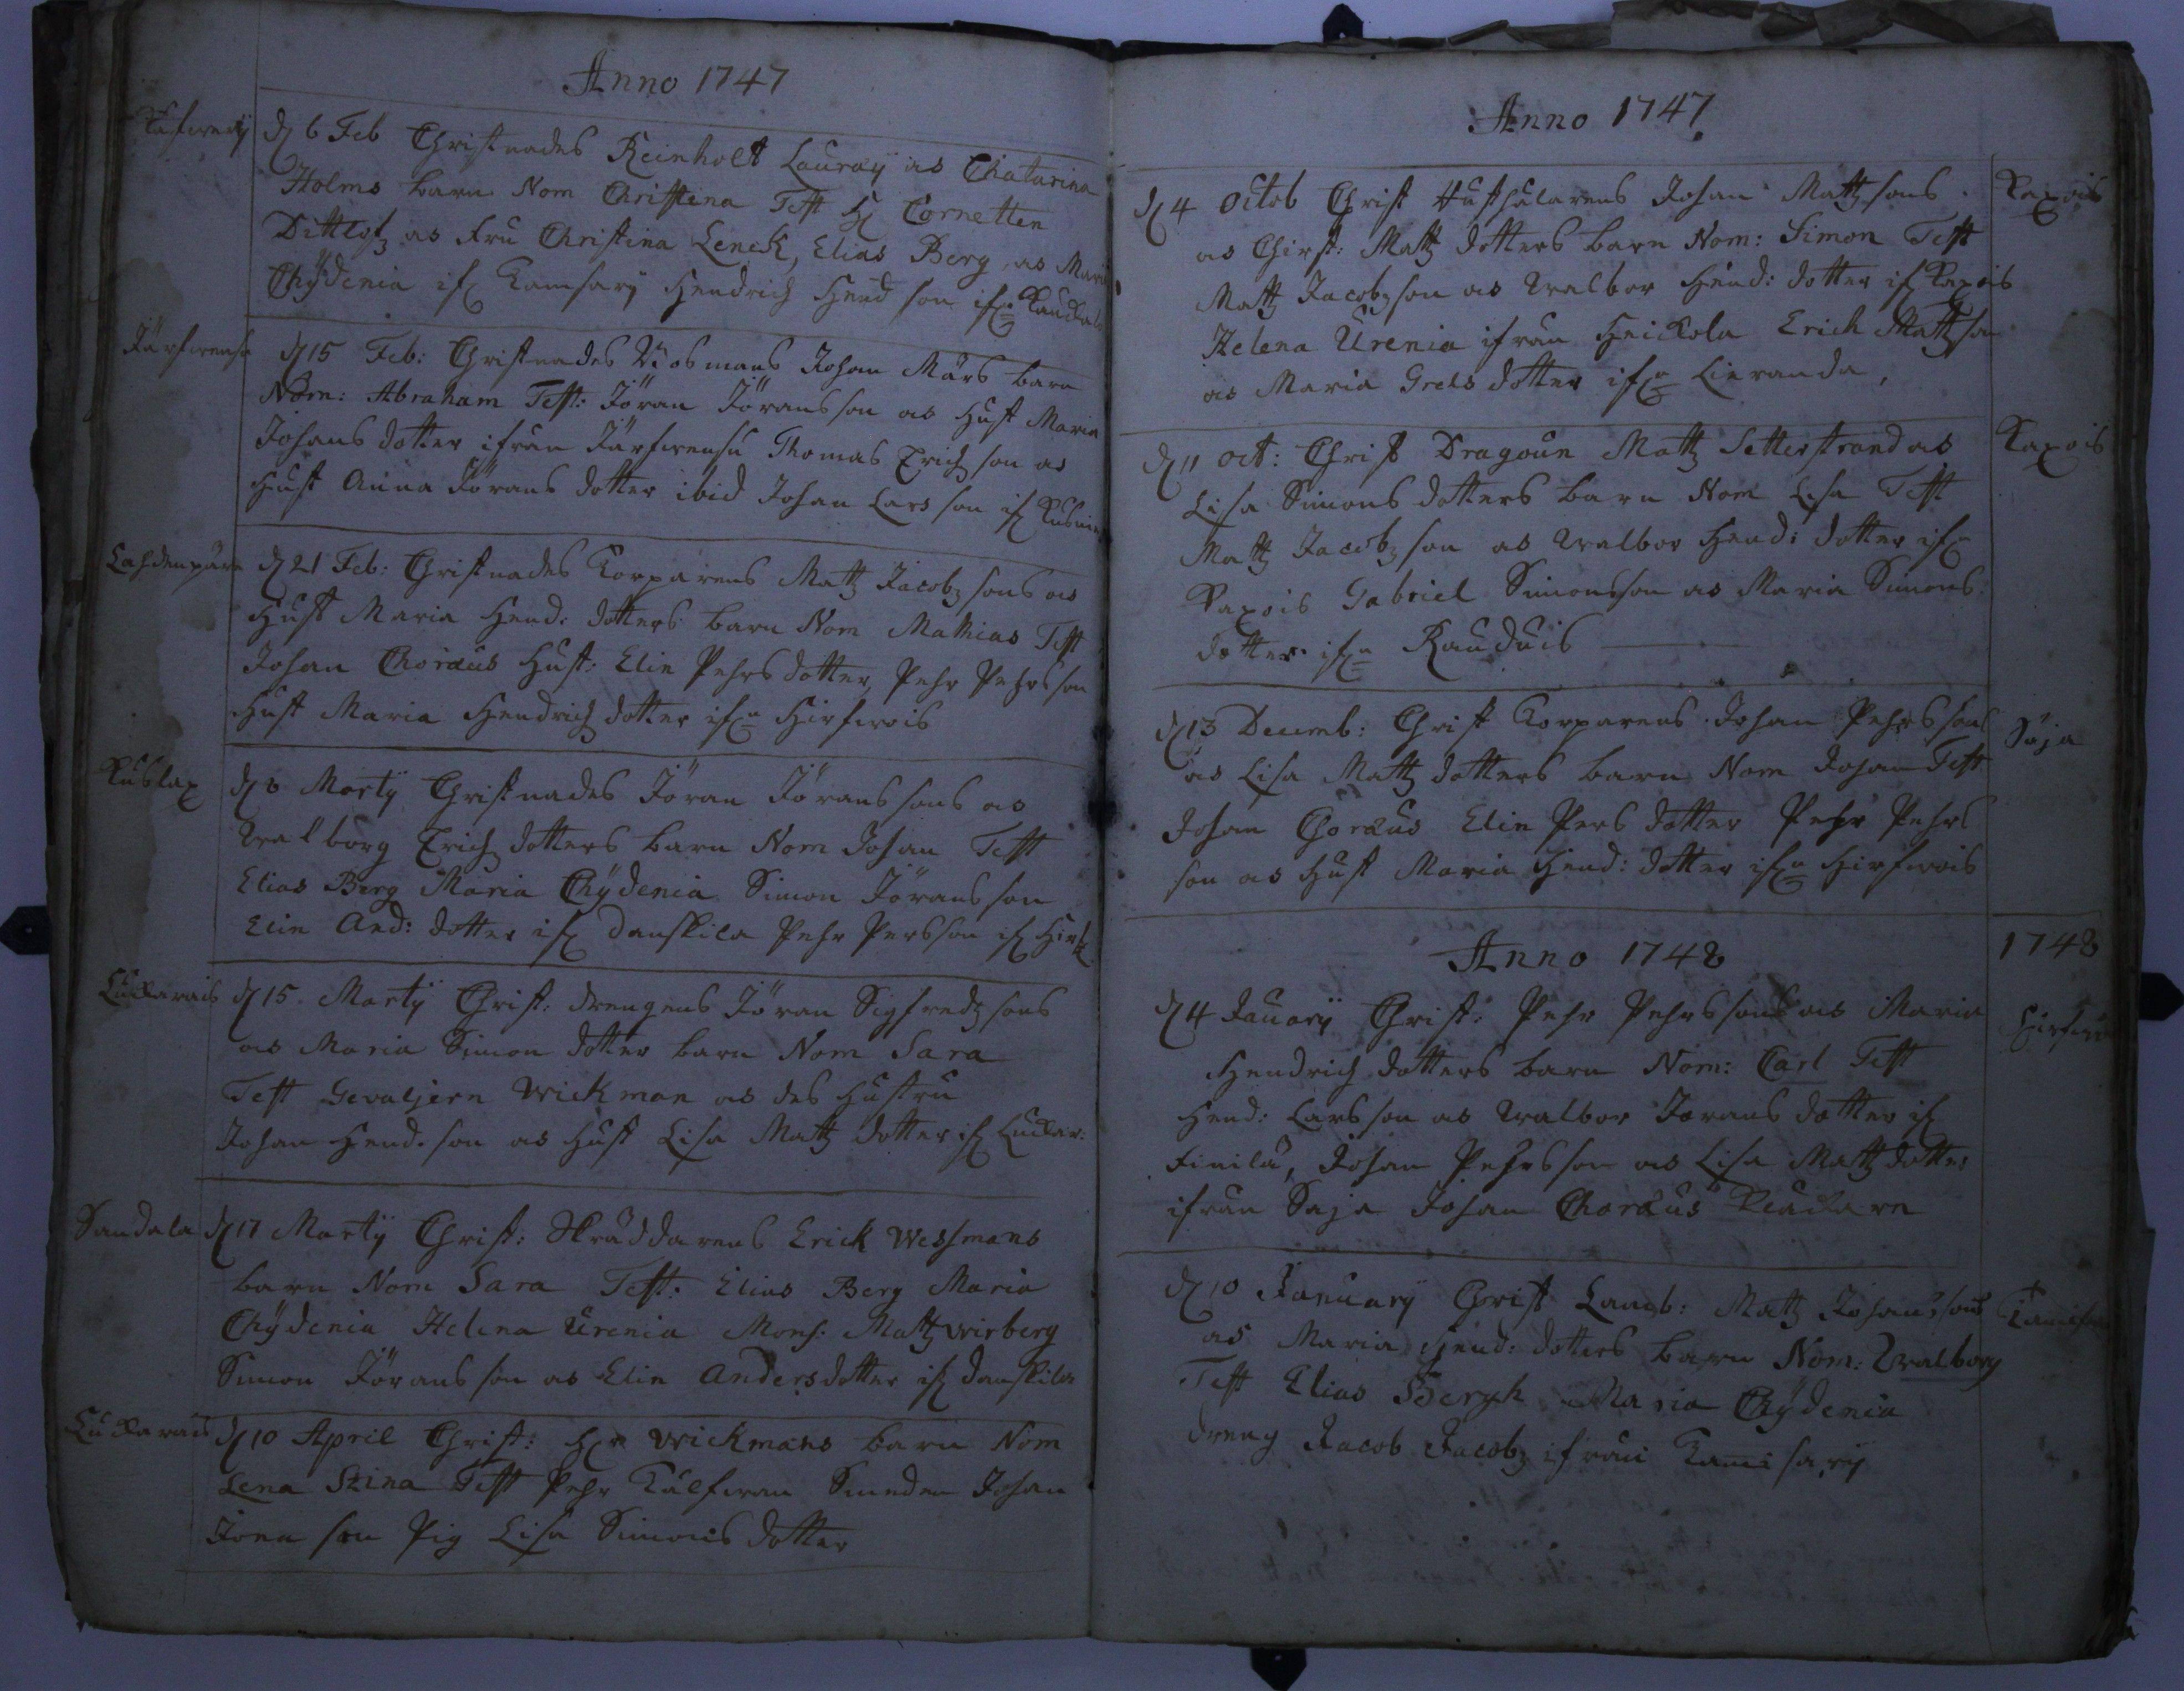 Anno 1747
d 6 Feb Christnades Reinholt Lauraij as Chatarina
Holms barn Nom Christina Test H Cornetten
Dittlofz as Fru Christina Lenck, Elias Berg as Maria
Chÿdenia if Kamsarÿ Hendrich Hend son ifn
Järfwensu
d 15 Feb: Christnades Bosmans Johan Mårs barn
Nom: Abraham Test: Jöran Jöransson as Hust Maria
Johans dotter ifrån Järfwensu Thomas Erich son as
Hust Anna Jörans dotter ibid Johan Lars son if
Lahdenperä
d 21 Feb: Christnades Korparens Matz Jacobz sons as
Hust Maria Hend: dotters barn Nom Mathias Test
Johan Choræus Hust: Elin Pehrs dotter, Pehr Pehrs son
Hust Maria Hendrich dotter ifn Hirfwois
Kuslax
d 8 Martÿ Christnades Jöran Jörans sons as
Walborg Erich dotters barn Nom Johan Test
Elias Berg Maria Chÿdenia Simon Jörans son
Elin And: dotter if Danskila Pehr Persson if Hirf
Luckarais
d 15 Martÿ Christ: drengens Jöran Sigfredz sons
as Maria Simon dotter barn Nom Sara
Test Gevaljern Wickman as des Hustru
Johan Hend. son as Hust Lisa Matz dotter if Luckar:
Sandala
d 17 Martÿ Christ: Skräddarens Erick Wessmans
barn Nom Sara Test: Elias Berg Maria
Chÿdenia Helena Urenia Mons: Matz Wirberg
Simon Jörans son as Elin Anders dotter if Danskila
Luckarais
d 10 April Christ: Hr Wickmans barn Nom
Lena Stina Test Pehr Kalfwan Smeden Johan
Jona son Pig Lisa Simons dotter
Anno 1747
d 4 Octob Christ Husthålarens Johan Matz sons
as Christ: Matz dotters barn Nom: Simon Test
Matz Jacobz son as Walbor Hend: dotter if Kaxois
Helena Urenia ifrån Heickola Erich Matz son
as Maria Grels dotter ifn Lieranda,
Kaxois
d 11 Oct: Christ Dragoun Matz Setterstrand as
Lisa Simons dotters barn Nom Lisa Test
Matz Jacobz son as Walbor Hend: dotter ifn
Kaxois Gabriel Simonsson as Maria Simons
dotter ifn Rauduis
Kaxois
d 13 Decemb: Christ Korparens Johan Pehrs sons
as Lisa Matz dotters barn Nom Johan Test
Johan Choræus Elin Pers dotter Pehr Pehrs
son as Hust Maria Hend: dotter ifn Hirfwois
Saja
Anno 1748
1748
d 4 Januarÿ Christ: Pehr Pehrs sons as Maria
Hendrich dotters barn Nom: Carl Test
Hend: Lars son as Walbor Jörans dotter if
Finilä, Johan Pehrs son as Lisa Matz dotter
ifrån Saja Johan Choræus
d 10 Januarÿ Christ Lamb: Matz Johans sons
as Maria Hend: dotters barn Nom: Walborg
Test Elias Bergh Maria Chÿdenia
dreng Jacob Jacobz ifrån Kamisarÿ